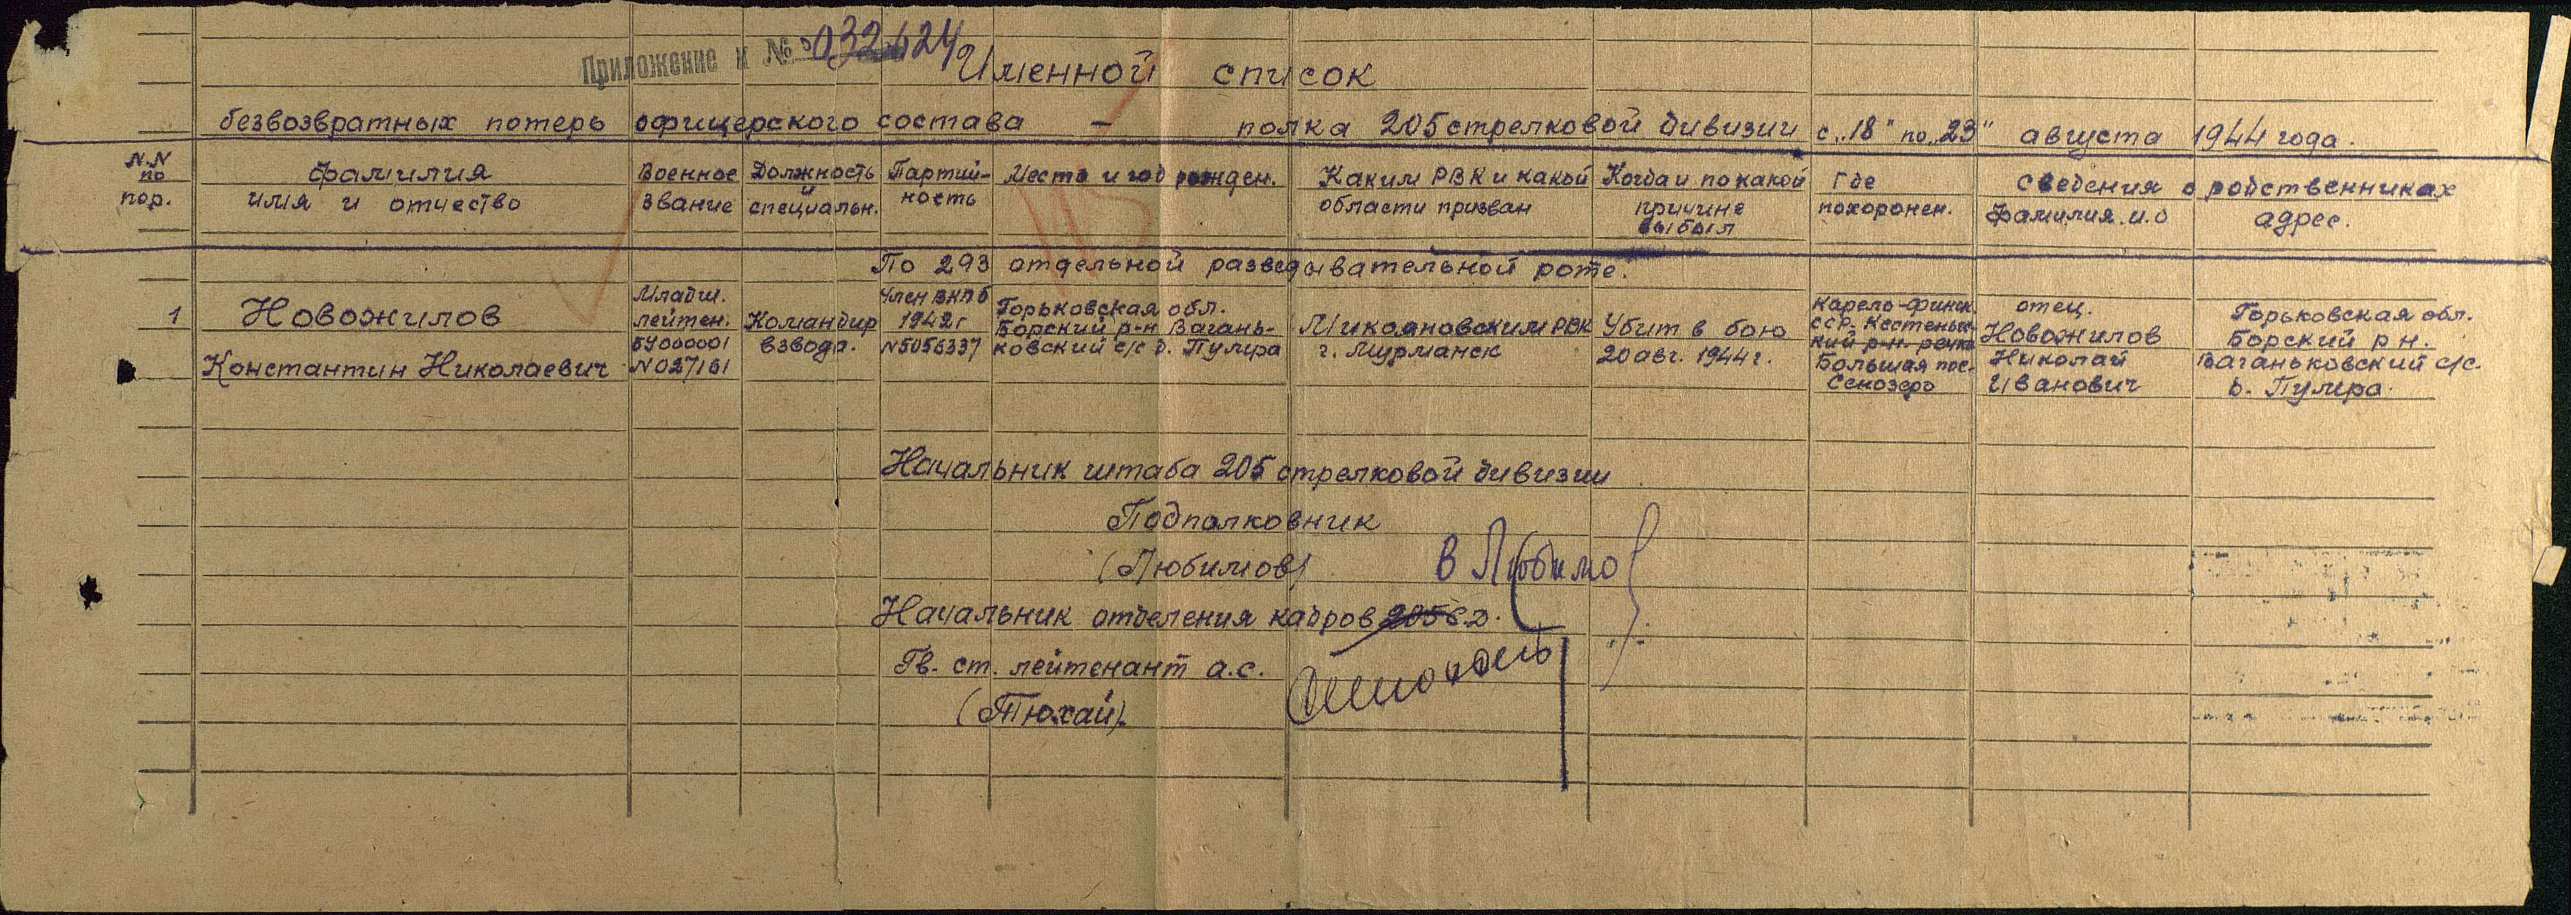 Приложение к № 032624
Именной список
безвозвратных потерь офицерского состава – полка 205 стрелковой дивизии с „18" по „23" августа 1944 года.
N.N по пор.
фамилия имя и отчество
Военное звание
Должность и специальн.
Партий-ность
Место и год рожден.
Каким РВК и какой области призван
Когда и по какой причине выбыл
Где похоронен.
Сведения о родственниках
фамилия. и. о
адрес.
По 293 отдельной разведывательной роте.
1
Новожилов
Константин Николаевич
Младш.
лейтен.
N 027161
Командир
взвода.
Член ВКПб
1942г
N5056337
Горьковская обл.
Борский р-н Вагань-
ковский с/с д. Пумра
Микояновским РВК
г. Мурманск
Убит в бою
20 авг. 1944 г.
Карело-Финск.
ССР. Кестеньг-
кий р-н. река
Большая пос.
Сенозеро
отец.
Новожилов
Николай
Иванович
Горьковская обл.
Борский р н.
Ваганьковский с/с.
д. Пумра.
Начальник штаба 205 стрелковой дивизии
Подполковник
(Любимов)
В Любимов
Начальник отделения кадров 205 с.д.
Гв. ст. лейтенант а.с.
(Тюхай).